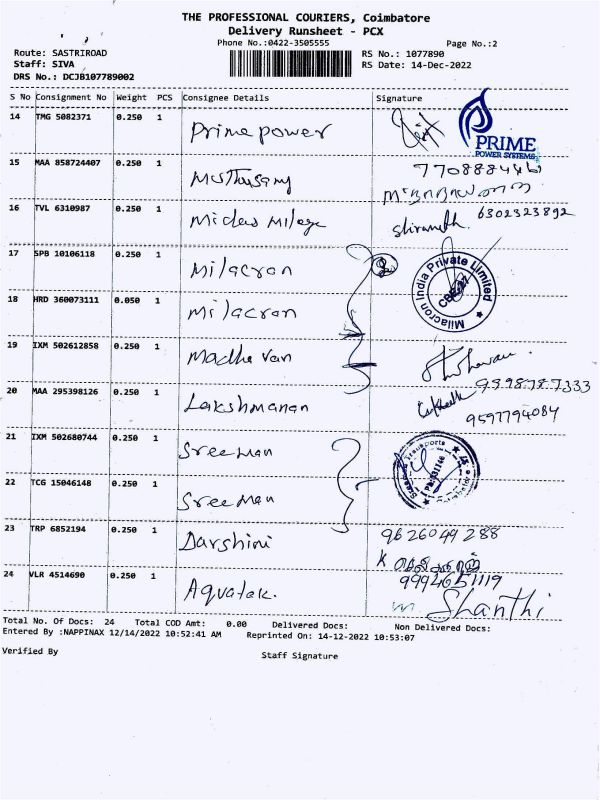 THE PROFESSIONAL COURIERS, Coimbatore
Delivery Runsheet - PCX
Phone No.:0422-3505555 Page No.:2
Route: SASTRIROAD RS No.: 1077890
Staff: SIVA RS Date: 14-Dec-2022
DRS No.: DCJB107789002
S No Consignment No Weight PCS Consignee Details Signature
14 TMG 5082371 0.250 1 Prime power PRIME
POWER SYSTEMS
15 MAA 858724407 0.250 1 Muthusamy
16 TVL 6310987 0.250 1 6302323892
17 SPB 10106118 0.250 1 Milacron Milacron India Private Limited
18 HRD 360073111 0.050 1 Milacron
19 IXM 502612858 0.250 1 Madhavan
20 MAA 295398126 0.250 1 Lakshmanan 9597794084
21 IXM 502680744 0.250 1 Sreeman
22 TCG 15046148 0.250 1 Sreeman
23 TRP 6852194 0.250 1 Darshini 9626049288
24 VLR 4514690 0.250 1 Aquatek. 9994651119
Shanthi
Total No. Of Docs: 24 Total COD Amt: 0.00 Delivered Docs: Non Delivered Docs:
Entered By :NAPPINAX 12/14/2022 10:52:41 AM Reprinted On: 14-12-2022 10:53:07
Verified By Staff Signature